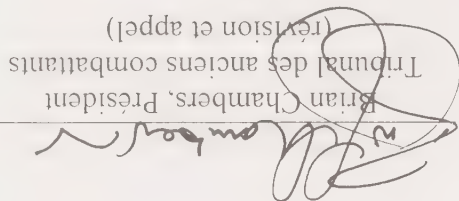 Brian Chambers, Président
Tribunal des anciens combattants
(révision et appel)